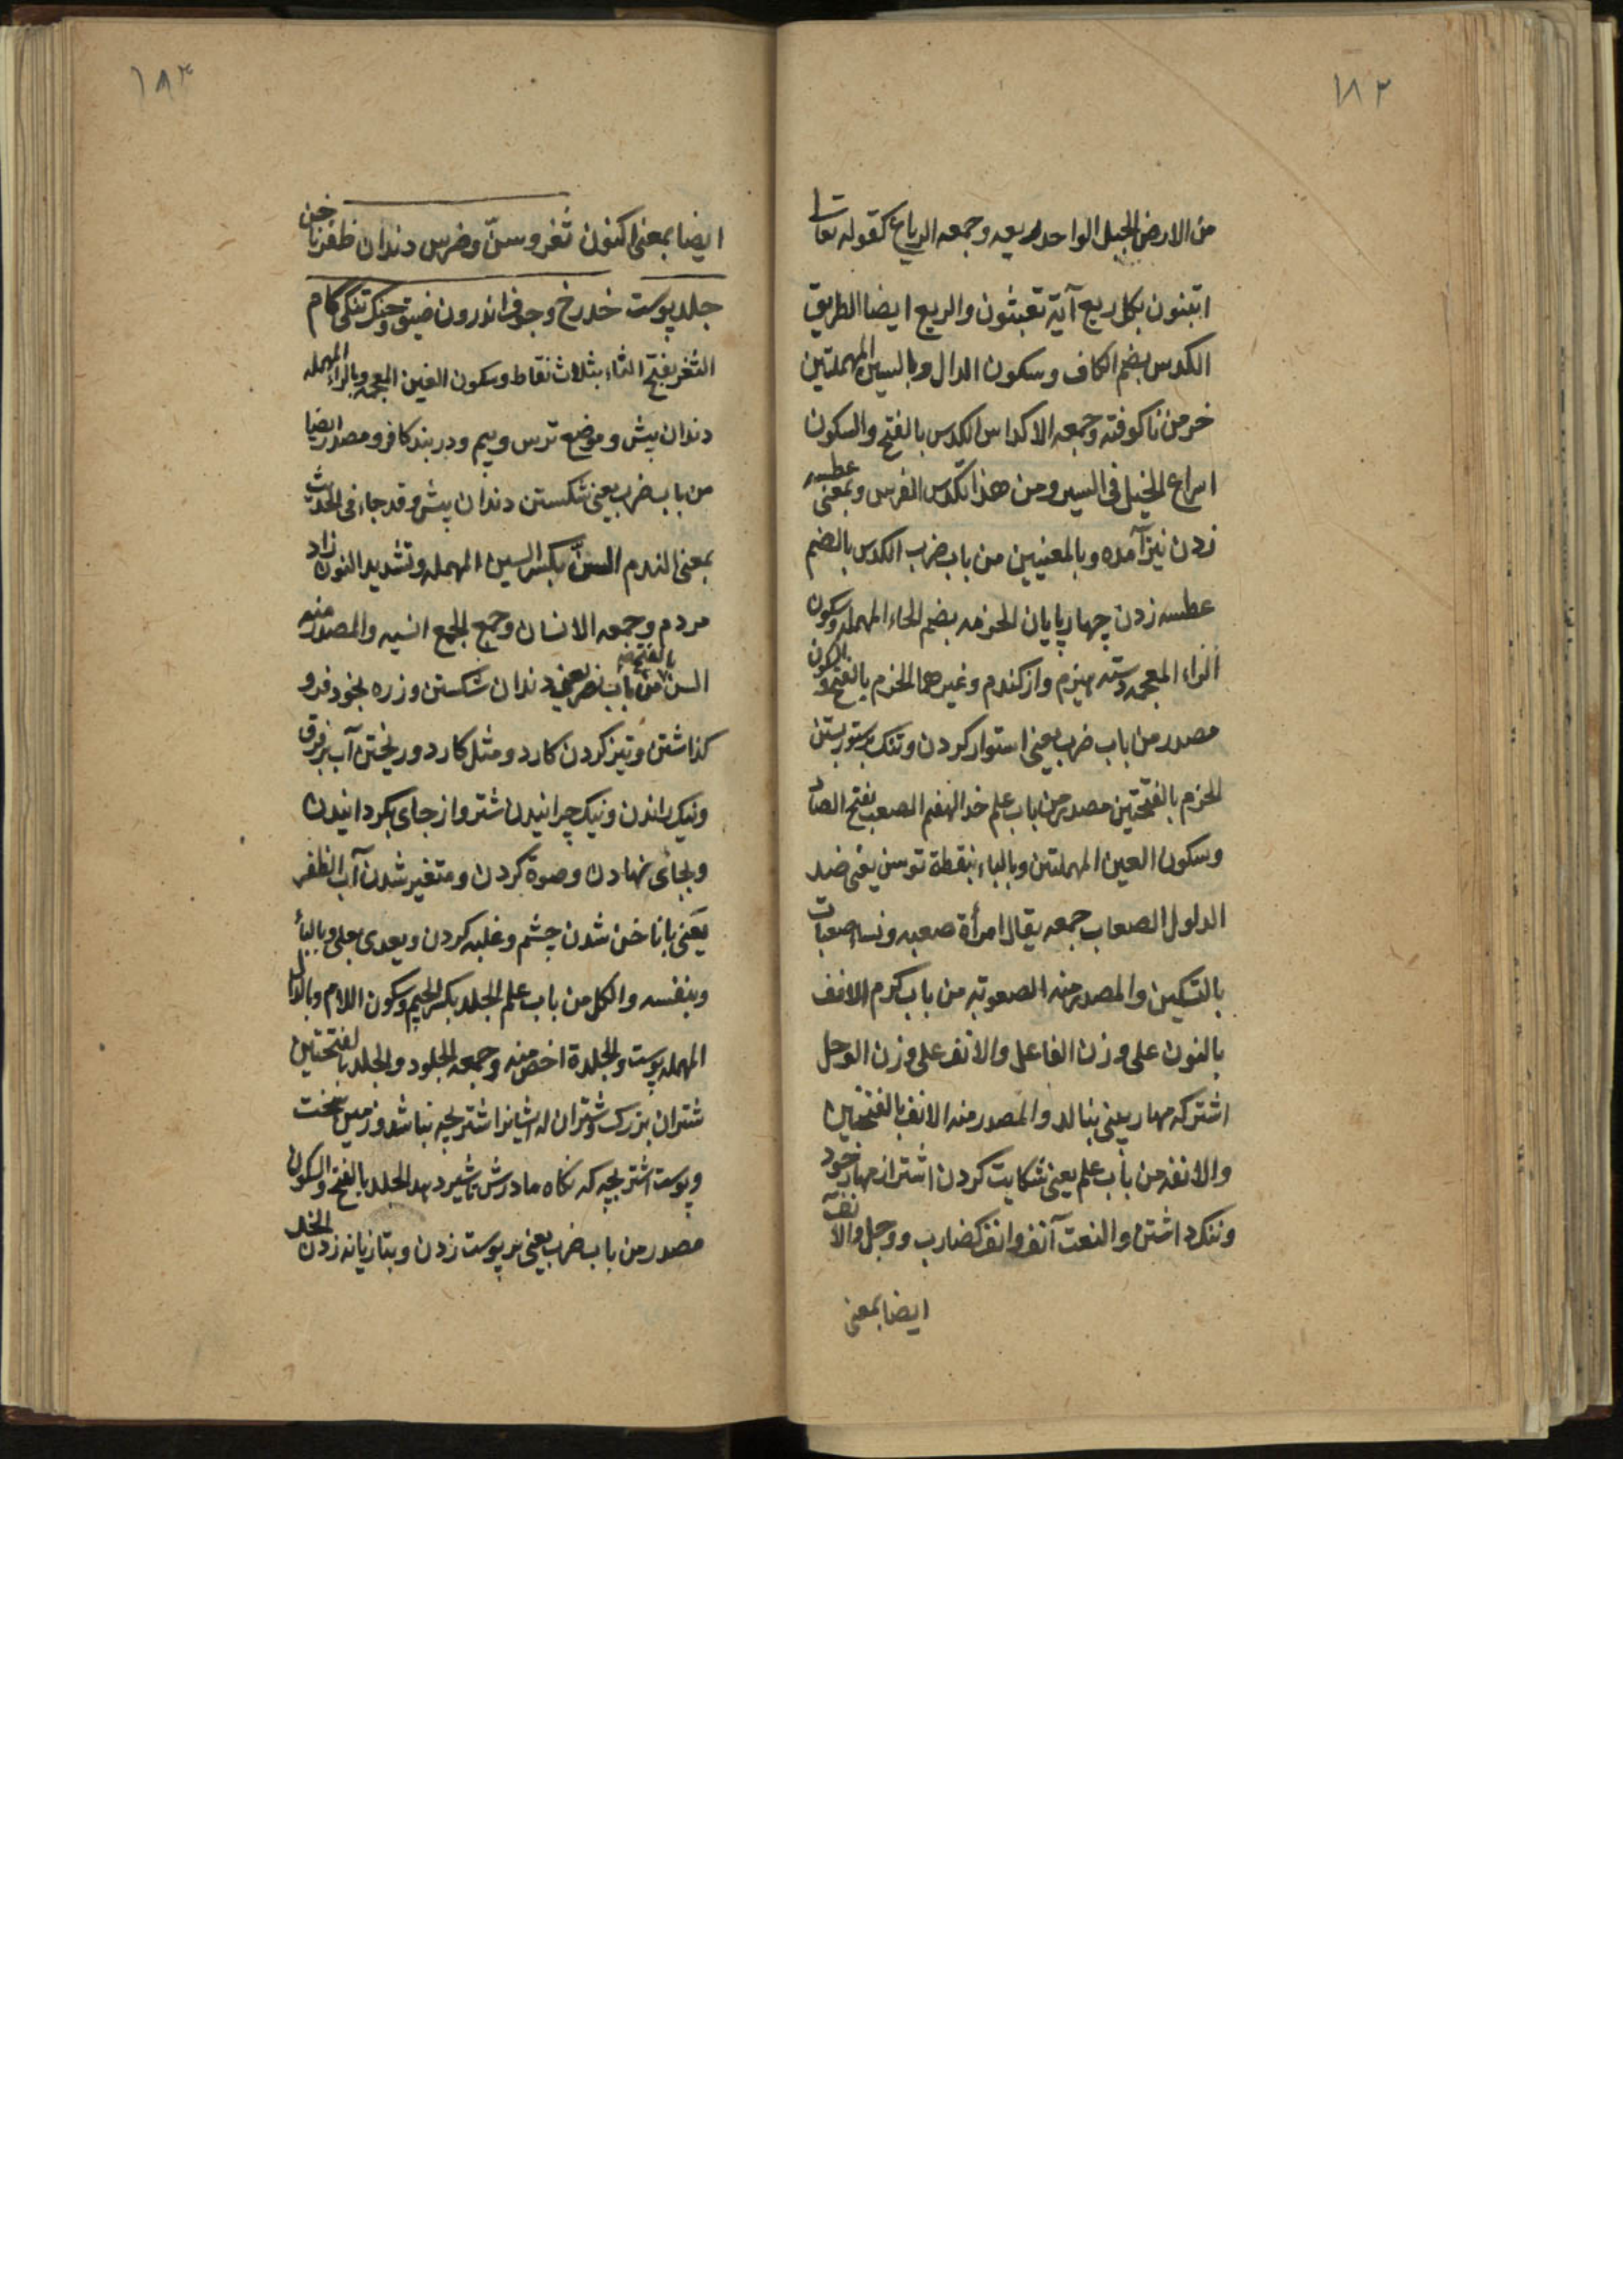 ۱۸۲
من الارض الجبل الواحد ریعه وجمعه الریاع کقوله تعالی
اتبنون بکل ریع آیة تعبثون والریع ایضا الطریق
الکدس بضم الکاف وسکون الدال وبالسین المهملتین
خرمن ناکوفته وجمعه الاکداس الکدس بالفتح والسکون
اسراع الخیل فی السیر ومن هذا تکدس الفرس وبمعنی عطسه
زدن نیز آمده وبالمعنیین من باب ضرب الکدس بالضم
عطسه زدن چهارپایان الحزمه بضم الحاء المهمله وسکون
الزاء المعجمه دسته هیزم واز کندم وغیرهما الحزم بالفتح والسکون
مصدر من باب ضرب یعنی استوار کردن وتنک برستور بستن
الحزم بالفتحتین مصدر من باب علم ضد الهضم الصعب بفتح الصاد
وسکون العین المهملتین وبالباء بنقطة توسن یعنی ضد
الدلول الصعاب جمعه یقال امرأة صعبه ونساء صعبات
بالتسکین والمصدر منه الصعوبة من باب کرم الانف
بالنون علی وزن الفاعل والانف علی وزن الوجل
اشتر که مهار بینی بنالد والمصدر منه الانف بالفتحتین
والانفه من باب علم یعنی شکایت کردن اشتر از مهار خود
وننک داشتن والنعت آنف وانف کضارب ووجل والآنف
ایضا بمعنی
۱۸۳
ایضا بمعنی اکنون ثغر وسنّ وضرس دندان ظفر ناخن
جلد پوست خد رخ وجوف اندرون ضیق وحنک تنکی کام
الثغر بفتح الثاء بثلاث نقاط وسکون الغین المعجمه وبالراء المهمله
دندان پیش وموضع ترس وبیم ودر بند کافر ومصدر ایضا
من باب ضرب یعنی شکستن دندان پیش وقد جاء فی الحدیث
بمعنی الندم السنّ بکسر السین المهمله وتشدید النون زاد
مردم وجمعه الانسان وجمع الجمع انسیه والمصدر منه
السن بالفتح من باب نصر یعنی دندان شکستن وزره بخود فرو
کذاشتن وتیز کردن کارد ومثل کارد وریختن آب بر فرق
ونیک راندن ونیک چرانیدن شتر واز جای بکردانیدن
وبجای نهادن وصوة کردن ومتغیر شدن آب الظفر
یعنی با ناخن شدن چشم وغلبه کردن ویعدی بعلی وبالباء
وبنفسه والکل من باب علم الجلد بکسر الجیم وسکون اللام وبالدال
المهمله پوست والجلدة اخص منه وجمعه الجلود والجلد بالفتحتین
شتران بزرک وشتران که ایشانرا اشتر بچه نباشد وزمین سخت
وپوست اشتر بچه که بکاه مادرش تا شیر دهد الجلد بالفتح والسکون
مصدر من باب ضرب یعنی بر پوست زدن وبتازیانه زدن الخد